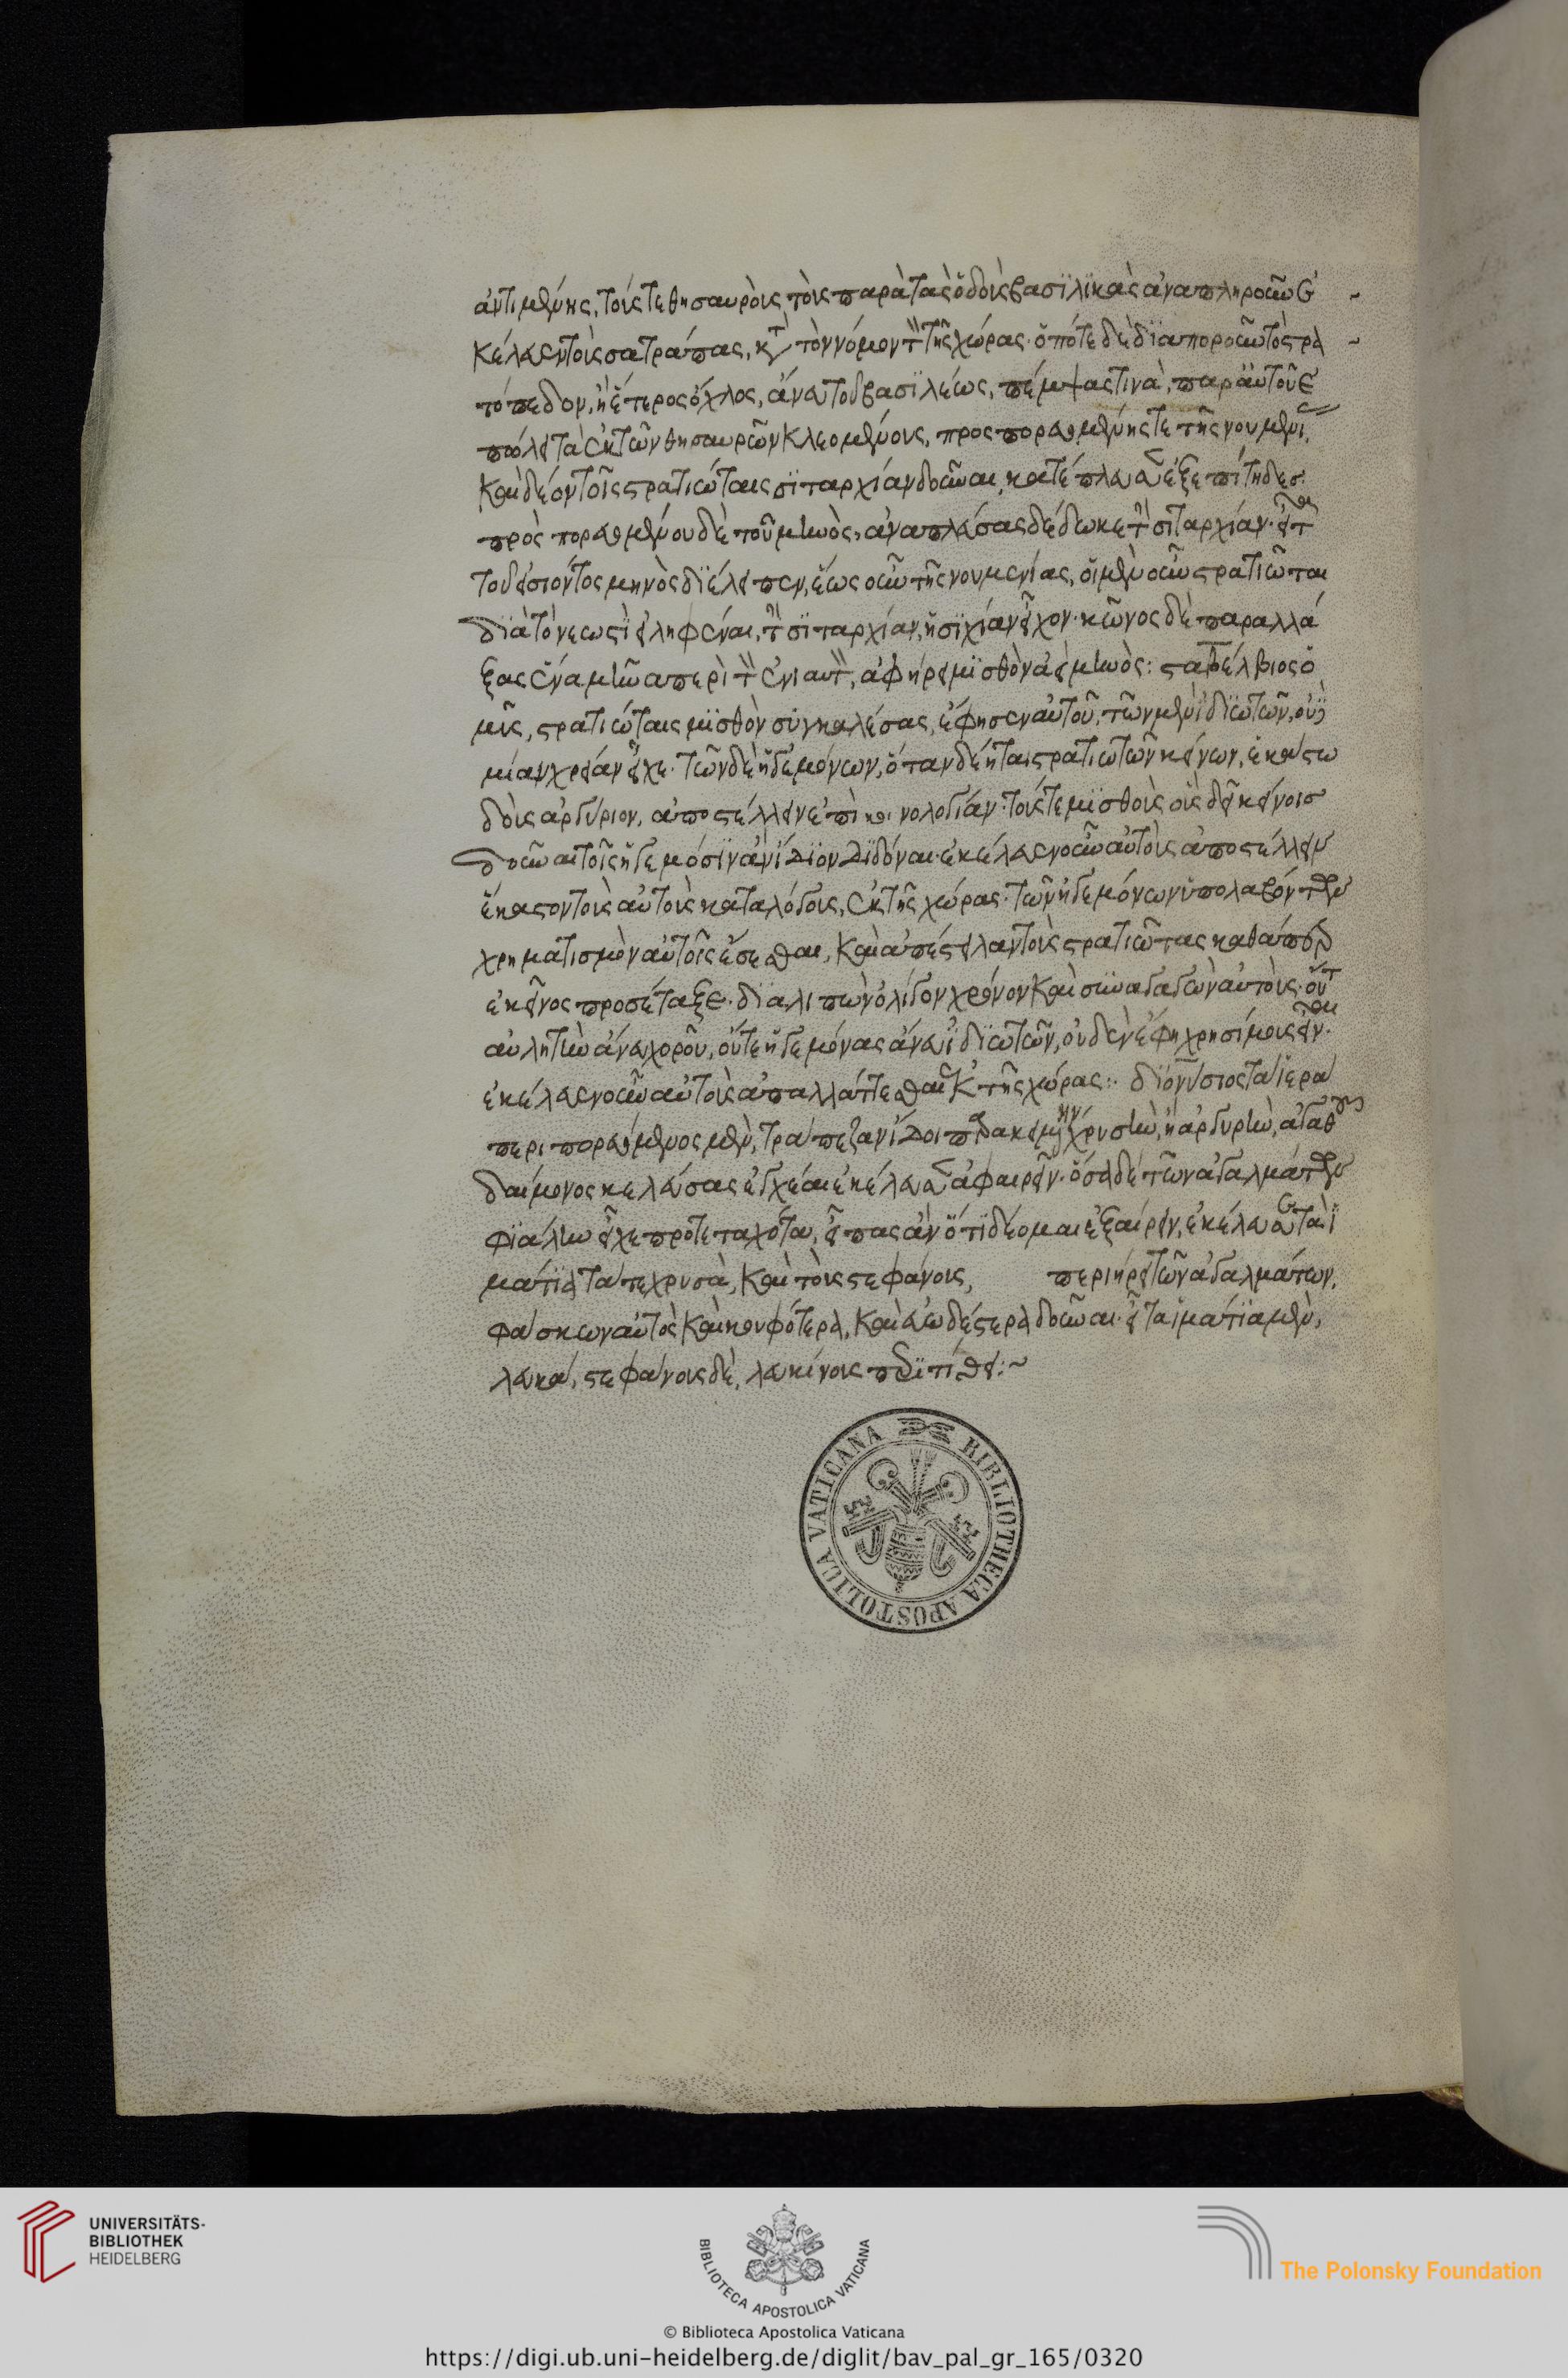 ἀντιμένης, τούς τε θησαυροὺς τοὺς παρὰ τὰς ὁδοὺς βασιλικὰς ἀναπληροῦν ἐ
κέλευεν τοὺς σατράπας, κατὰ τὸν νόμον τὸν τῆς χώρας· ὁπότε δὲ διαποροῦντο στρα
τόπεδον, ἢ ἕτερος ὄχλος, ἄνευ τοῦ βασιλέως, πέμψας τινὰ παρ' αὑτοῦ ἐ
πώλει τὰ ἐκ τῶν θησαυρῶν κλεομένους, προσπορευομένης τε τῆς νουμηνί
καὶ δέον τοῖς στρατιώταις σιταρχίαν δοῦναι, κατέπλευσεν ἐξεπίτηδες
προσπορευομένου δὲ τοῦ μηνὸς, ἀναπλεύσας δέδωκε τὴν σιταρχίαν· εἶτα
τοῦ εἰσιόντος μηνὸς διέλειπεν, ἕως οὖν τῆς νουμενίας, οἱ μὲν οὖν στρατιῶται
διὰ τὸ νεωστὶ εἰληφέναι, τὴν σιταρχίαν, ἡσυχίαν εἶχον· κεῖνος δὲ παραλλά
ξας ἕνα μῆνα περὶ τὸν ἐνιαυτὸν, ἀφῄρει μισθὸν ἀεὶ μηνὸς: σταβέλβιος ὁ
μυς, στρατιώταις μισθὸν συγκαλέσας, ἔφησεν αὐτοῦ, τῶν μὲν ἰδιωτῶν, οὐδε
μίαν χρείαν ἔχειν· τῶν δὲ ἡγεμόνων, ὅταν δέηται στρατιωτῶν κείνων, ἑκάστω
δοὺς ἀργύριον, ἀποστέλλειν ἐπὶ κενολογίαν· τούς τε μισθοὺς οὓς δεῖ κείνοις
δοῦναι τοῖς ἡγεμόσιν ἂν ἥδιον διδόναι· ἐκέλευεν οὖν αὐτοὺς ἀποστέλλειν
ἕκαστον τοὺς αὐτοὺς καταλόγους, ἐκ τῆς χώρας· τῶν ἡγεμόνων ὑπολαβόντων
χρηματισμὸν αὐτοῖς ἔσεσθαι, καὶ ἀπέστειλαν τοὺς στρατιώτας καθάπερ
ἐκεῖνος προσέταξε· διαλιπὼν ὀλίγον χρόνον καὶ συναγαγὼν αὐτοὺς· οὔτ
αὐλητὴν ἄνευ χοροῦ, οὔτε ἡγεμόνας ἄνευ ἰδιωτῶν, οὐδὲν ἔφη χρησίμους εἶναι·
ἐκέλευεν οὖν αὐτοὺς ἀπαλλάττεσθαι ἐκ τῆς χώρας:· διονύσιος τὰ ἱερὰ
περιπορευόμενος μὲν, τράπεζαν ἴδοι παρακειμένην χρυσῆν, ἢ ἀργυρῆν, ἀγαθοῦ
δαίμονος κελεύσας ἐγχέαι ἐκέλευσεν ἀφαιρεῖν· ὅσα δὲ τῶν ἀγαλμάτων
φιάλην εἶχε προτετακότα, εἴπας ἂν ὅτι δέομαι ἐξαίρειν, ἐκέλευε τὰ ἱ
μάτια τά τε χρυσᾶ, καὶ τοὺς στεφάνους, περιήρει τῶν ἀγαλμάτων,
φάσκων αὐτὸς καὶ κουφότερα, καὶ εὐωδέστερα δοῦναι· εἶτα ἱμάτια μὲν,
λευκὰ, στεφάνους δὲ, λευκίνους περιετίθει:~
BIBLIOTHECA APOSTOLICA VATICANA
UNIVERSITÄTS-
BIBLIOTHEK
HEIDELBERG
BIBLIOTECA APOSTOLICA VATICANA
The Polonsky Foundation
© Biblioteca Apostolica Vaticana
https://digi.ub.uni-heidelberg.de/diglit/bav_pal_gr_165/0320